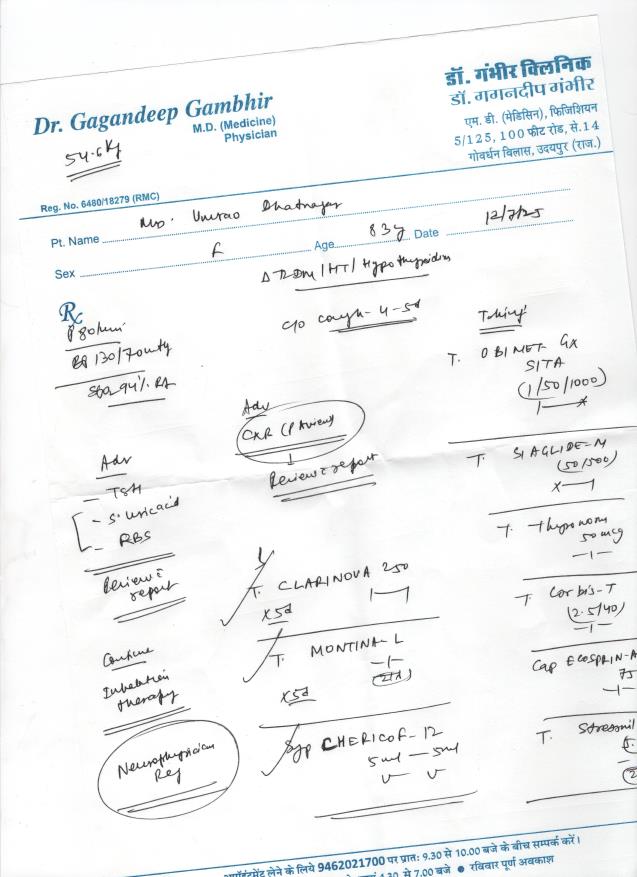 Dr. Gagandeep Gambhir
M.D. (Medicine)
Physician
डॉ. गंभीर क्लिनिक
डॉ. गगनदीप गंभीर
एम. डी. (मेडिसिन), फिजिशियन
5/125, 100 फीट रोड, से.14
गोवर्धन विलास, उदयपुर (राज.)
54.6 Kg
Reg. No. 6480/18279 (RMC)
Pt. Name Umrao Bhatnagar
Sex F Age 83y Date 12/7/25
Δ T2DM/HT/Hypothyroidism
Rx
P 80/min
BP 130/70
SpO2 94% RA
c/o cough - 4-5d
Adv
CXR (PA view)
↓
Review c report
Adv
- TSH
- S. Uric acid
- RBS
Review c report
Continue
Inhalation therapy
Neurophysician
Ref
T. CLARINOVA 250
x5d 1—1
T. MONTINA-L
—1—
x5d
Syp CHERICOF-12
5ml — 5ml
Taking
T. OBIMET GX
SITA
(1/50/1000)
1—x
T. SIAGLIDE-M
(50/500)
x—1
T. Thyronorm
50mcg
—1—
T. Corbis-T
(2.5/40)
—1—
Cap ECOSPRIN-A
75
—1—
T. Stresnil
लेने के लिये 9462021700 पर प्रातः 9.30 से 10.00 बजे के बीच सम्पर्क करें।
से 7.00 बजे ● रविवार पूर्ण अवकाश